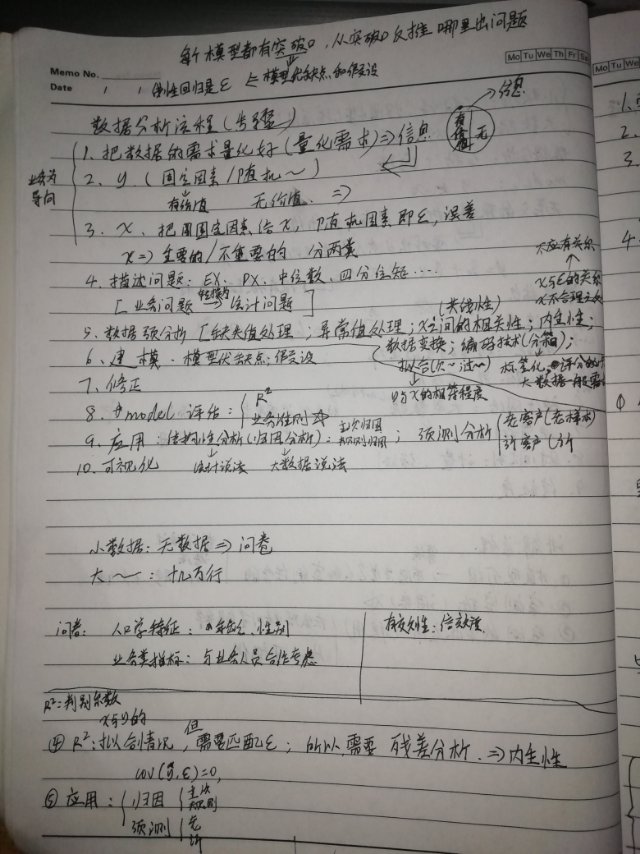 新模型都有突破口，从突破口反推哪里出问题
Memo No.
Mo Tu We Th Fr
Date / /
线性回归是ε ⇐ 模型优缺点和假设
Mo Tu We
数据分析流程(步骤)
信息
有价值 无
业务为导向
1. 把数据的需求量化好(量化需求)⇒信息
2. y (固定因素/随机~)
有价值 无价值 ⇒
3. x, 把固定因素给x, 随机因素即ε, 误差
x⇒主要的/不重要的 分两类
不应有关系
4. 描述问题: EX、DX、中位数、四分位矩....
x与ε的关系
[业务问题 → 统计问题]
(共线性)
5. 数据预分析 [缺失值处理; 异常值处理; x之间的相关性; 内生性;
数据变换; 编码技术(分箱);
6. 建模. 模型优缺点; 假设
拟合(欠~过~)
标准化
7. 修正
y与x的相符程度
大数据一般
8. model 评估: { R²
业务准则
9. 应用: 结构性分析(归因分析): ; 预测分析 { 老客户(老样本)
新客户(新
10. 可视化 统计说法 大数据说法
小数据: 无数据⇒问卷
大~: 十几万行
问卷: 人口学特征: 年龄、性别
有效性: 信效度
业务类指标: 与业务人员合作考虑
R²: 判别系数
x与y的
④ R²: 拟合情况, 但需要匹配ε; 所以需要 残差分析. ⇒内生性
cov(y,ε)=0,
⑤ 应用: { 归因 { 主次
预测 { 老
新